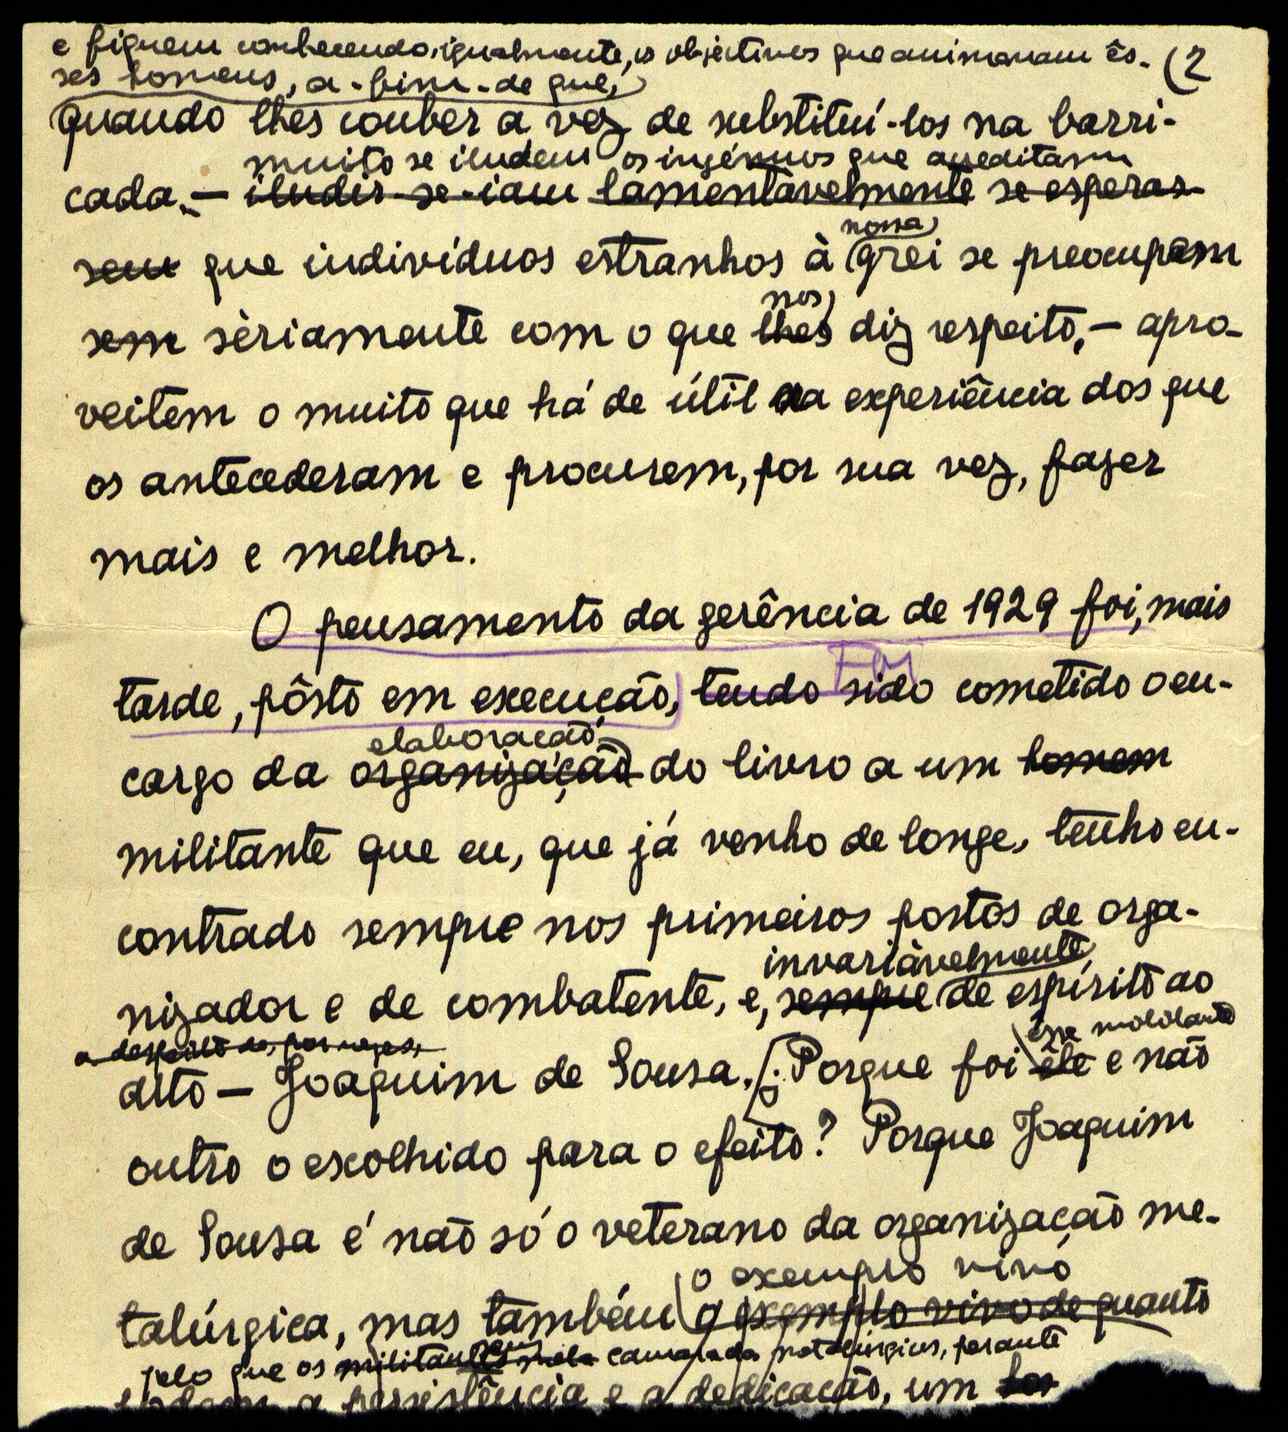 e fiquem conhecendo, igualmente, os objectivos que animavam ês- (2
ses homens, a-fim-de que,
quando lhes couber a vez de substituí-los na barri-
muito se iludem os ingénuos que acreditam
cada, — iludir-se-iam lamentavelmente se esperas-
nossa
sem que indivíduos estranhos à grei se preocupem
nos
sem sèriamente com o que lhes diz respeito, — apro-
veitem o muito que há de útil na experiência dos que
os antecederam e procurem, por sua vez, fazer
mais e melhor.
O pensamento da gerência de 1929 foi, mais
tarde, pôsto em execução, tendo sido cometido o en-
elaboração
cargo da organização do livro a um homem
militante que eu, que já venho de longe, tenho en-
contrado sempre nos primeiros postos de orga-
invariàvelmente,
nizador e de combatente, e, sempre de espírito ao
êsse militante
a despeito de, por vezes,
alto — Joaquim de Sousa. Porque foi êle e não
outro o escolhido para o efeito? Porque Joaquim
de Sousa é não só o veterano da organização me-
o exemplo vivo
talúrgica, mas também o exemplo vivo de quanto
pelo que os militantes camarada metalúrgicos, perante
podem a persistência e a dedicação, um